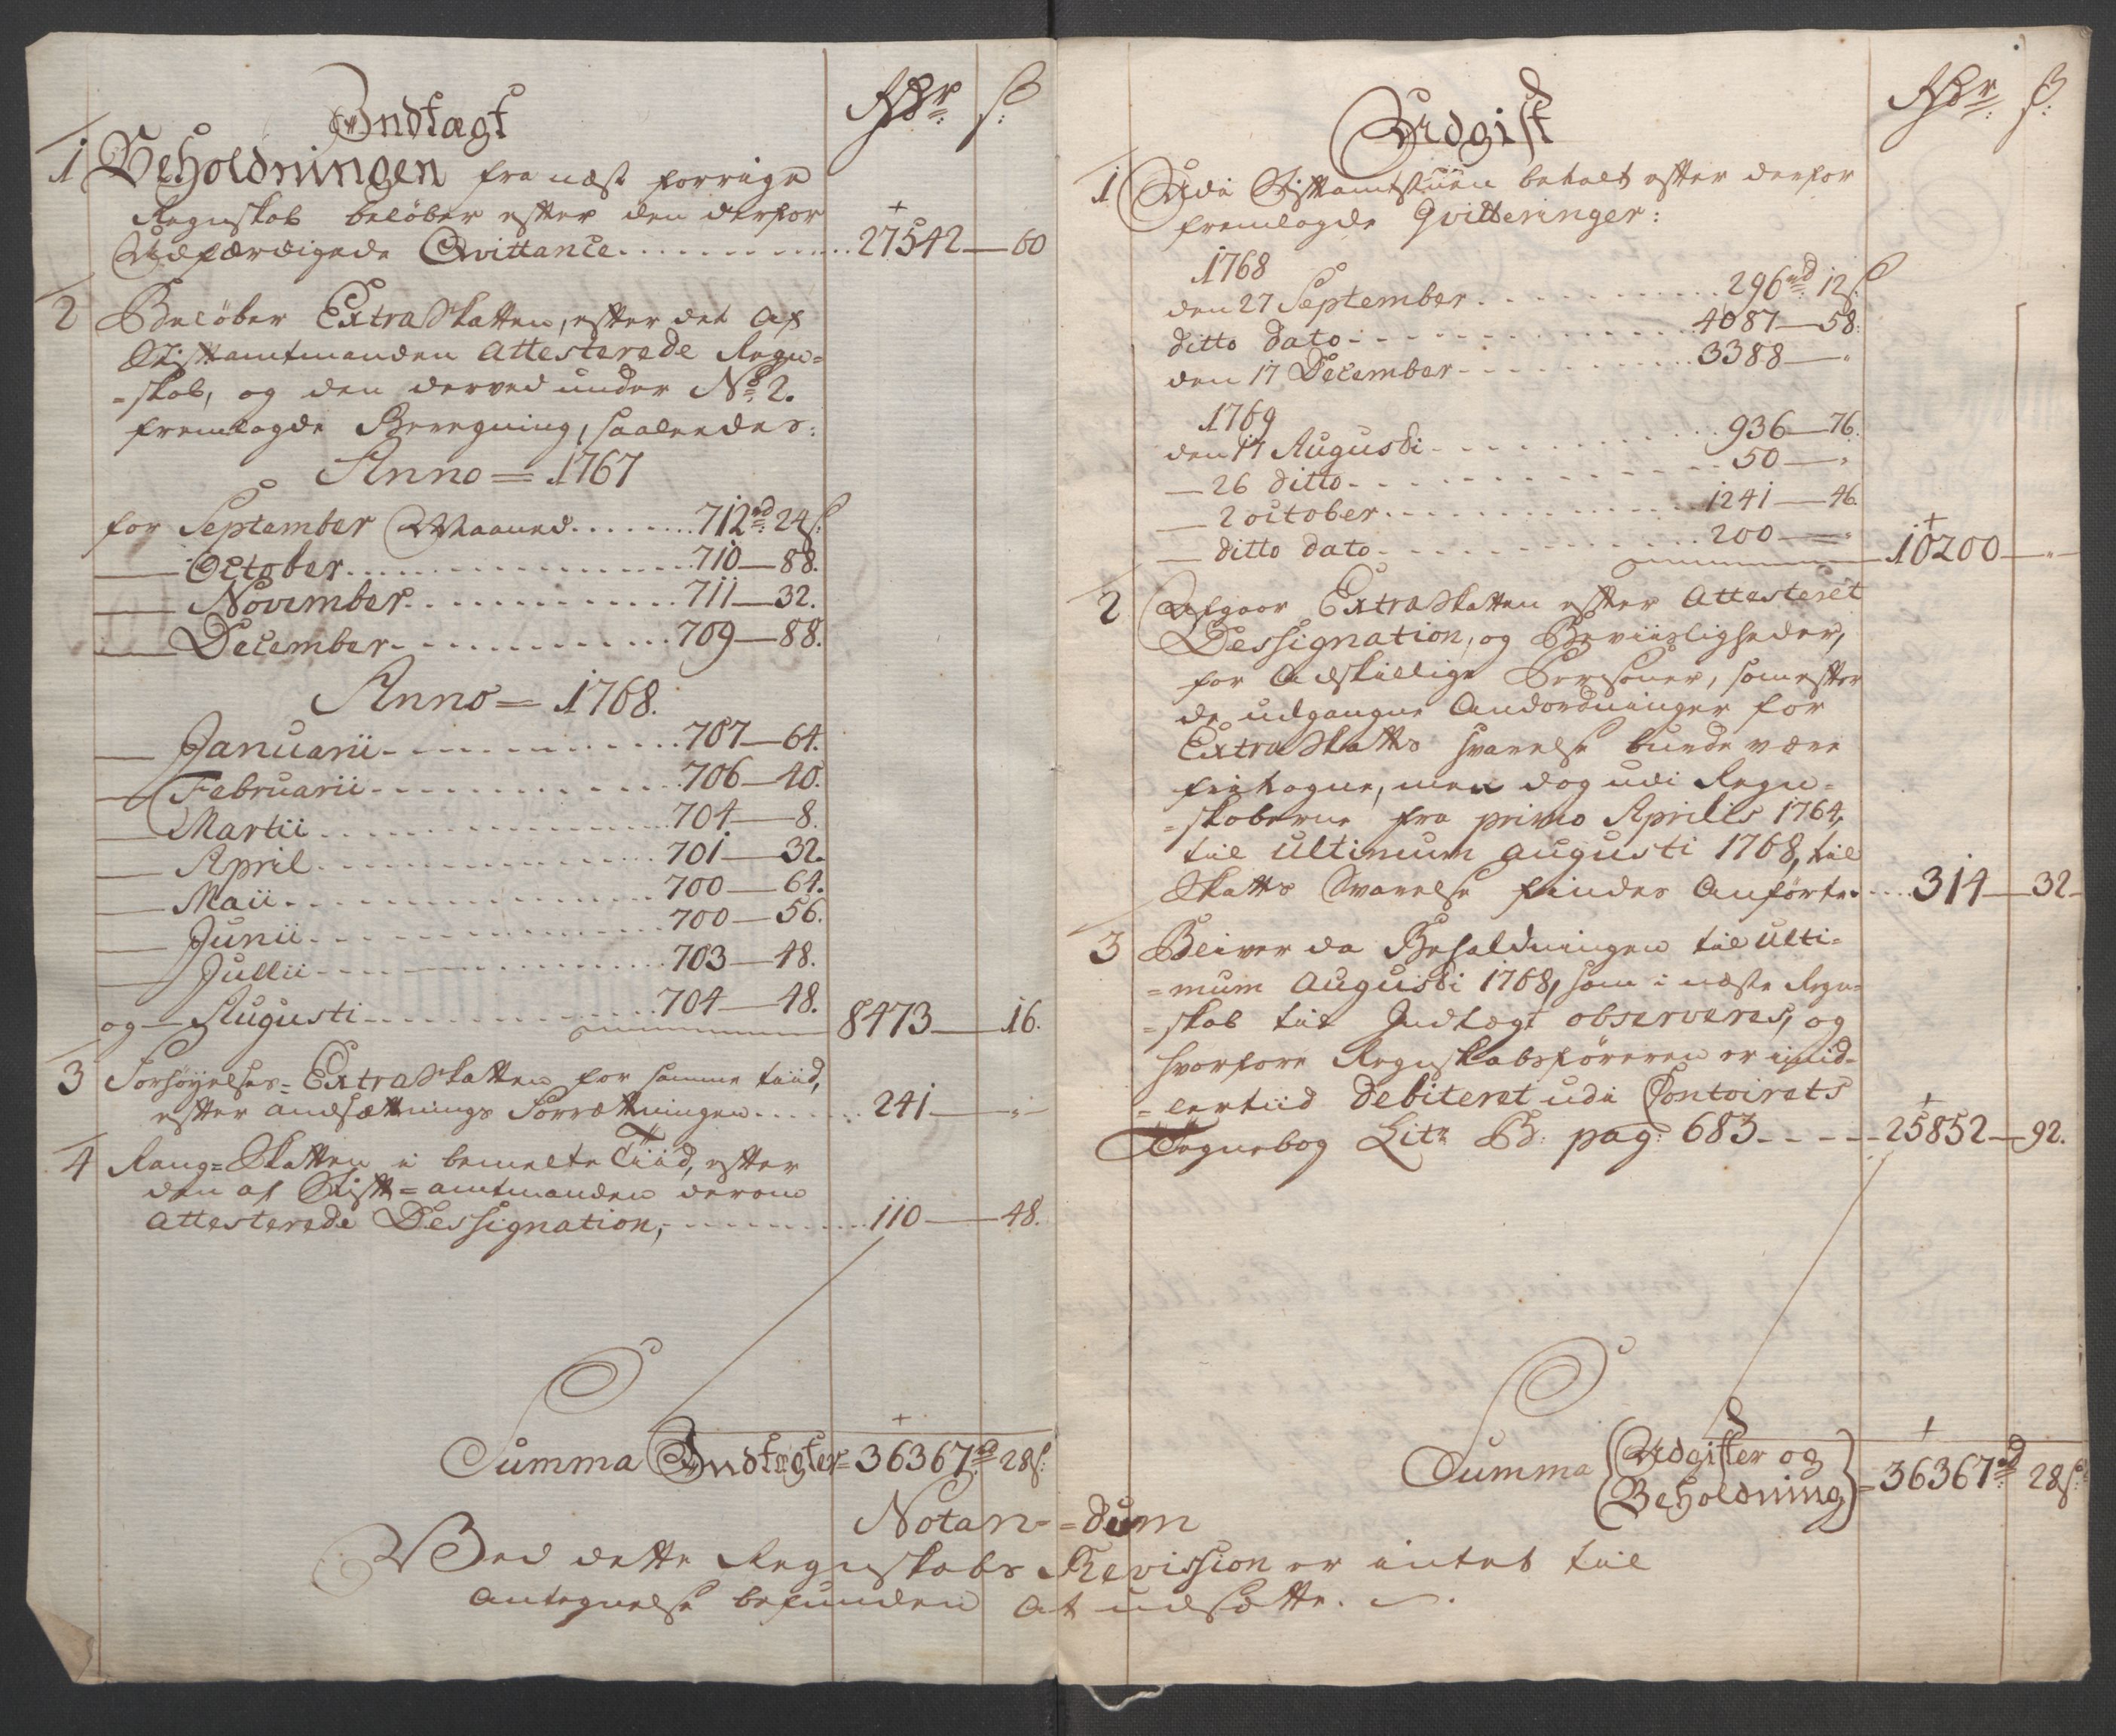 Indtægt
Rdr. ß.
1 Beholdningen fra næst forrige
Regnskab beløber efter den derfor
Udfærdigede Qvittance . . . . 27542 — 60
2 Beløber Extra Skatten, efter det af
Stiftamtmanden Attesterede Regn=
=skab, og den derved under No. 2.
fremlagde Beregning, saaleedes:
Anno = 1767
for September Maaned . . . . 712rd 24ß.
— October . . . . 710 — 88.
— November . . . . 711 — 32.
— December . . . . 709 — 88.
Anno = 1768.
— Januarii . . . . 707 — 64.
— Februarii . . . . 706 — 40.
— Martii . . . . 704 — 8.
— April . . . . 701 — 32.
— Maii . . . . 700 — 64.
— Junii . . . . 700 — 56.
— Jullii . . . . 703 — 48.
og — Augusti . . . . 704 — 48. 8473 — 16.
3 Forhøyelses= Extra Skatten for samme tiid,
efter andsættnings Forrættningen . . . . 241 — „ —
4 Rang=Skatten i bemelte Tiid, efter
den af Stift=amtmanden derom
Attesterede Dessignation, . . . . 110 — 48.
Summa Indtægter = 36367rd 28ß.
Udgift
Rdr. ß.
1 Udi Stiftamtstuen betalt efter derfor
fremlagde Qvitteringer:
1768
den 27 September . . . . 296rd 12ß
ditto dato . . . . 4087 — 58.
den 17 December . . . . 3388 — „
1769
den 17 Augusti . . . . 936 — 76.
— 26 ditto . . . . 50 — „
— 2 october . . . . 1241 — 46.
— ditto dato . . . . 200 — „ 10200 — „ —
2 Afgaar Extra Skatten efter Attesteret
Dessignation, og Beviisligheder,
for Adskillige Personer, som efter
de udgangne Andordninger for
Extra Skatts Svarelse burde være
fritagne, men dog udi Regn=
=skaberne fra primo Aprilis 1764,
til ultimum augusti 1768, til
Skatts Svarelse findes Anførte . . . . 314 — 32 —
3 Bliver da Beholdningen til ulti=
=mum Augusti 1768, som i næste Regn=
=skab til Indtægt observeres, og
hvorfore Regnskabsføreren er imid=
=lertiid Debiteret udi Contoirets
Tegnebog Litr B: pag: 683 . . . . 25852 — 92.
Summa Udgifter og
Beholdning = 36367rd 28ß.
Notan= =dum
Ved dette Regnskabs Revission er intet til
Antegnelse befunden at udsætte.